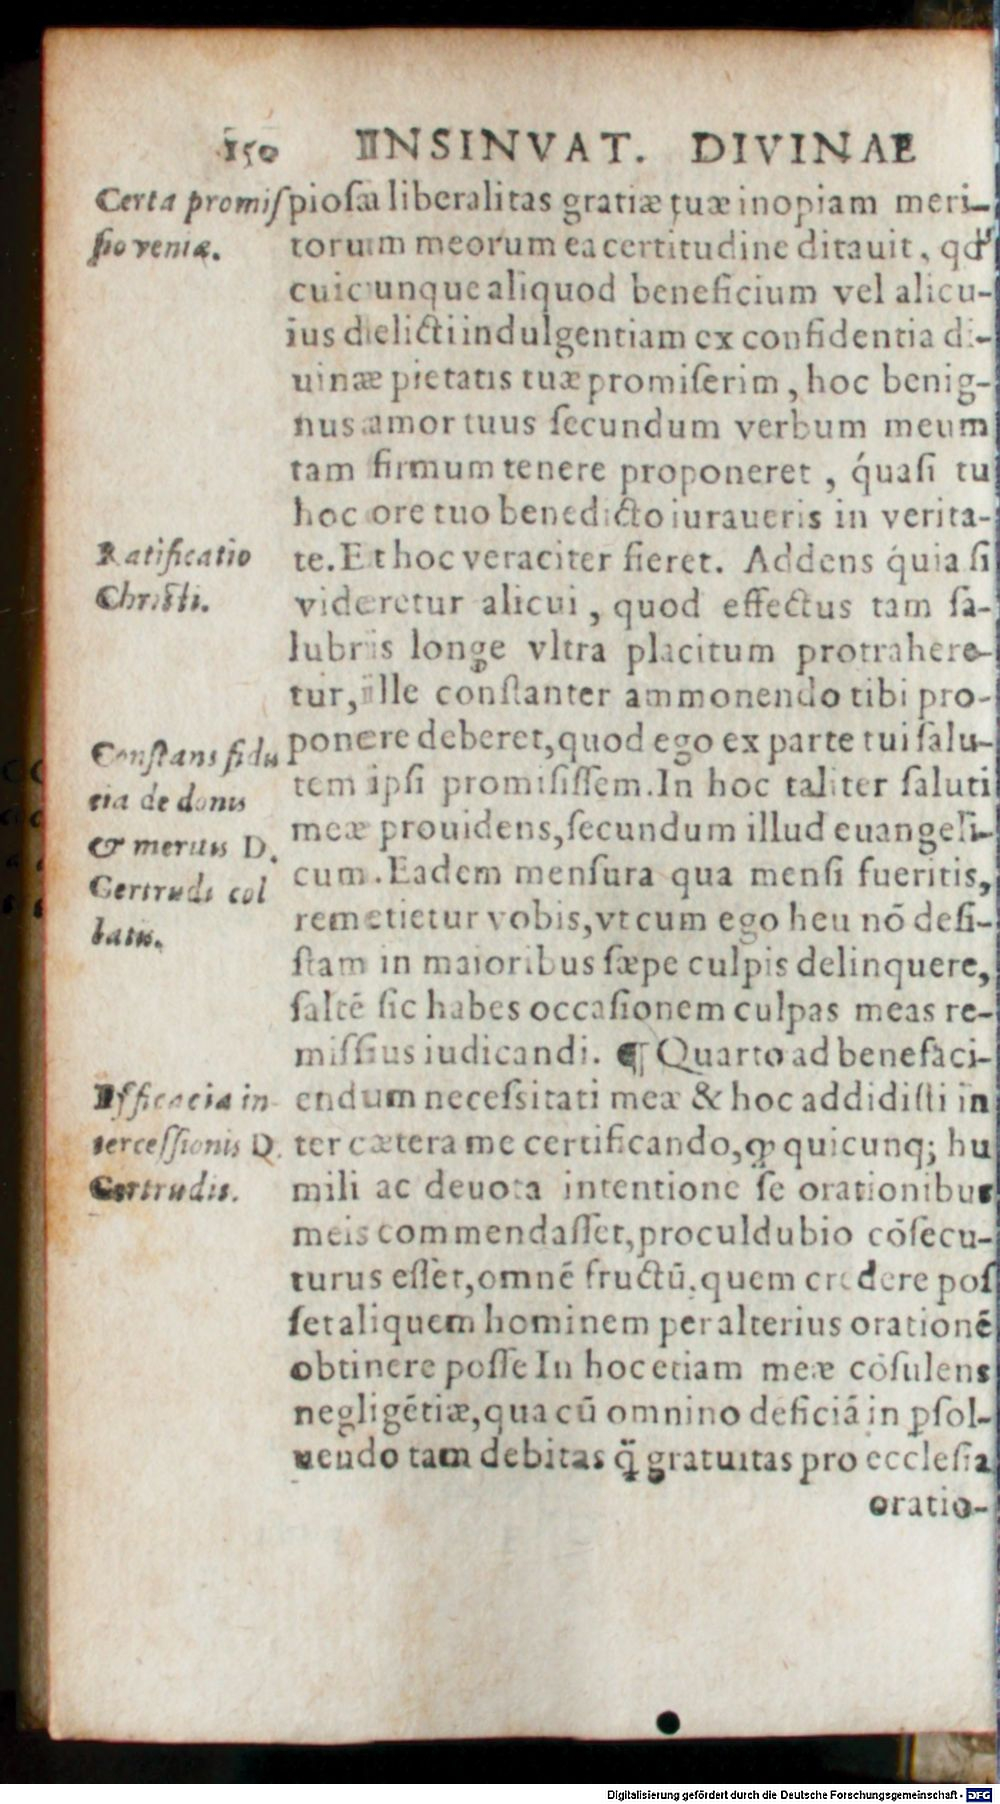 150 INSINVAT. DIVINAE
Certa promiſ
ſio veniæ.
pioſa liberalitas gratiæ tuæ inopiam meri-
torum meorum ea certitudine ditauit, qd'
cuicunque aliquod beneficium vel alicu-
ius delicti indulgentiam ex confidentia di-
uinæ pietatis tuæ promiſerim, hoc benig-
nus amor tuus ſecundum verbum meum
tam firmum tenere proponeret, quaſi tu
hoc ore tuo benedicto iuraueris in verita-
Ratificatio
Chriſti.
te. Et hoc veraciter fieret. Addens quia ſi
videretur alicui, quod effectus tam ſa-
lubris longe vltra placitum protrahere-
tur, ille conſtanter ammonendo tibi pro-
Conſtans fidu
tia de donis
& meritis D.
Gertrudi col
latis.
ponere deberet, quod ego ex parte tui ſalu-
tem ipſi promiſiſſem. In hoc taliter ſaluti
meæ prouidens, ſecundum illud euangeli-
cum. Eadem menſura qua menſi fueritis,
remetietur vobis, vt cum ego heu nō deſi-
ſtam in maioribus ſæpe culpis delinquere,
ſaltē ſic habes occaſionem culpas meas re-
miſſius iudicandi. ¶ Quarto ad benefaci-
Efficacia in
terceſſionis D.
Gertrudis.
endum neceſsitati meæ & hoc addidiſti in
ter cætera me certificando, ꝙ quicunq; hu
mili ac deuota intentione ſe orationibus
meis commendaſſet, proculdubio cōſecu-
turus eſſet, omnē fructū, quem credere poſ
ſet aliquem hominem per alterius orationē
obtinere poſſe In hoc etiam meæ cōſulens
negligētiæ, qua cū omnino deficiā in ꝑſol-
uendo tam debitas q̃ gratuitas pro eccleſia
oratio-
Digitalisierung gefördert durch die Deutsche Forschungsgemeinschaft - DFG